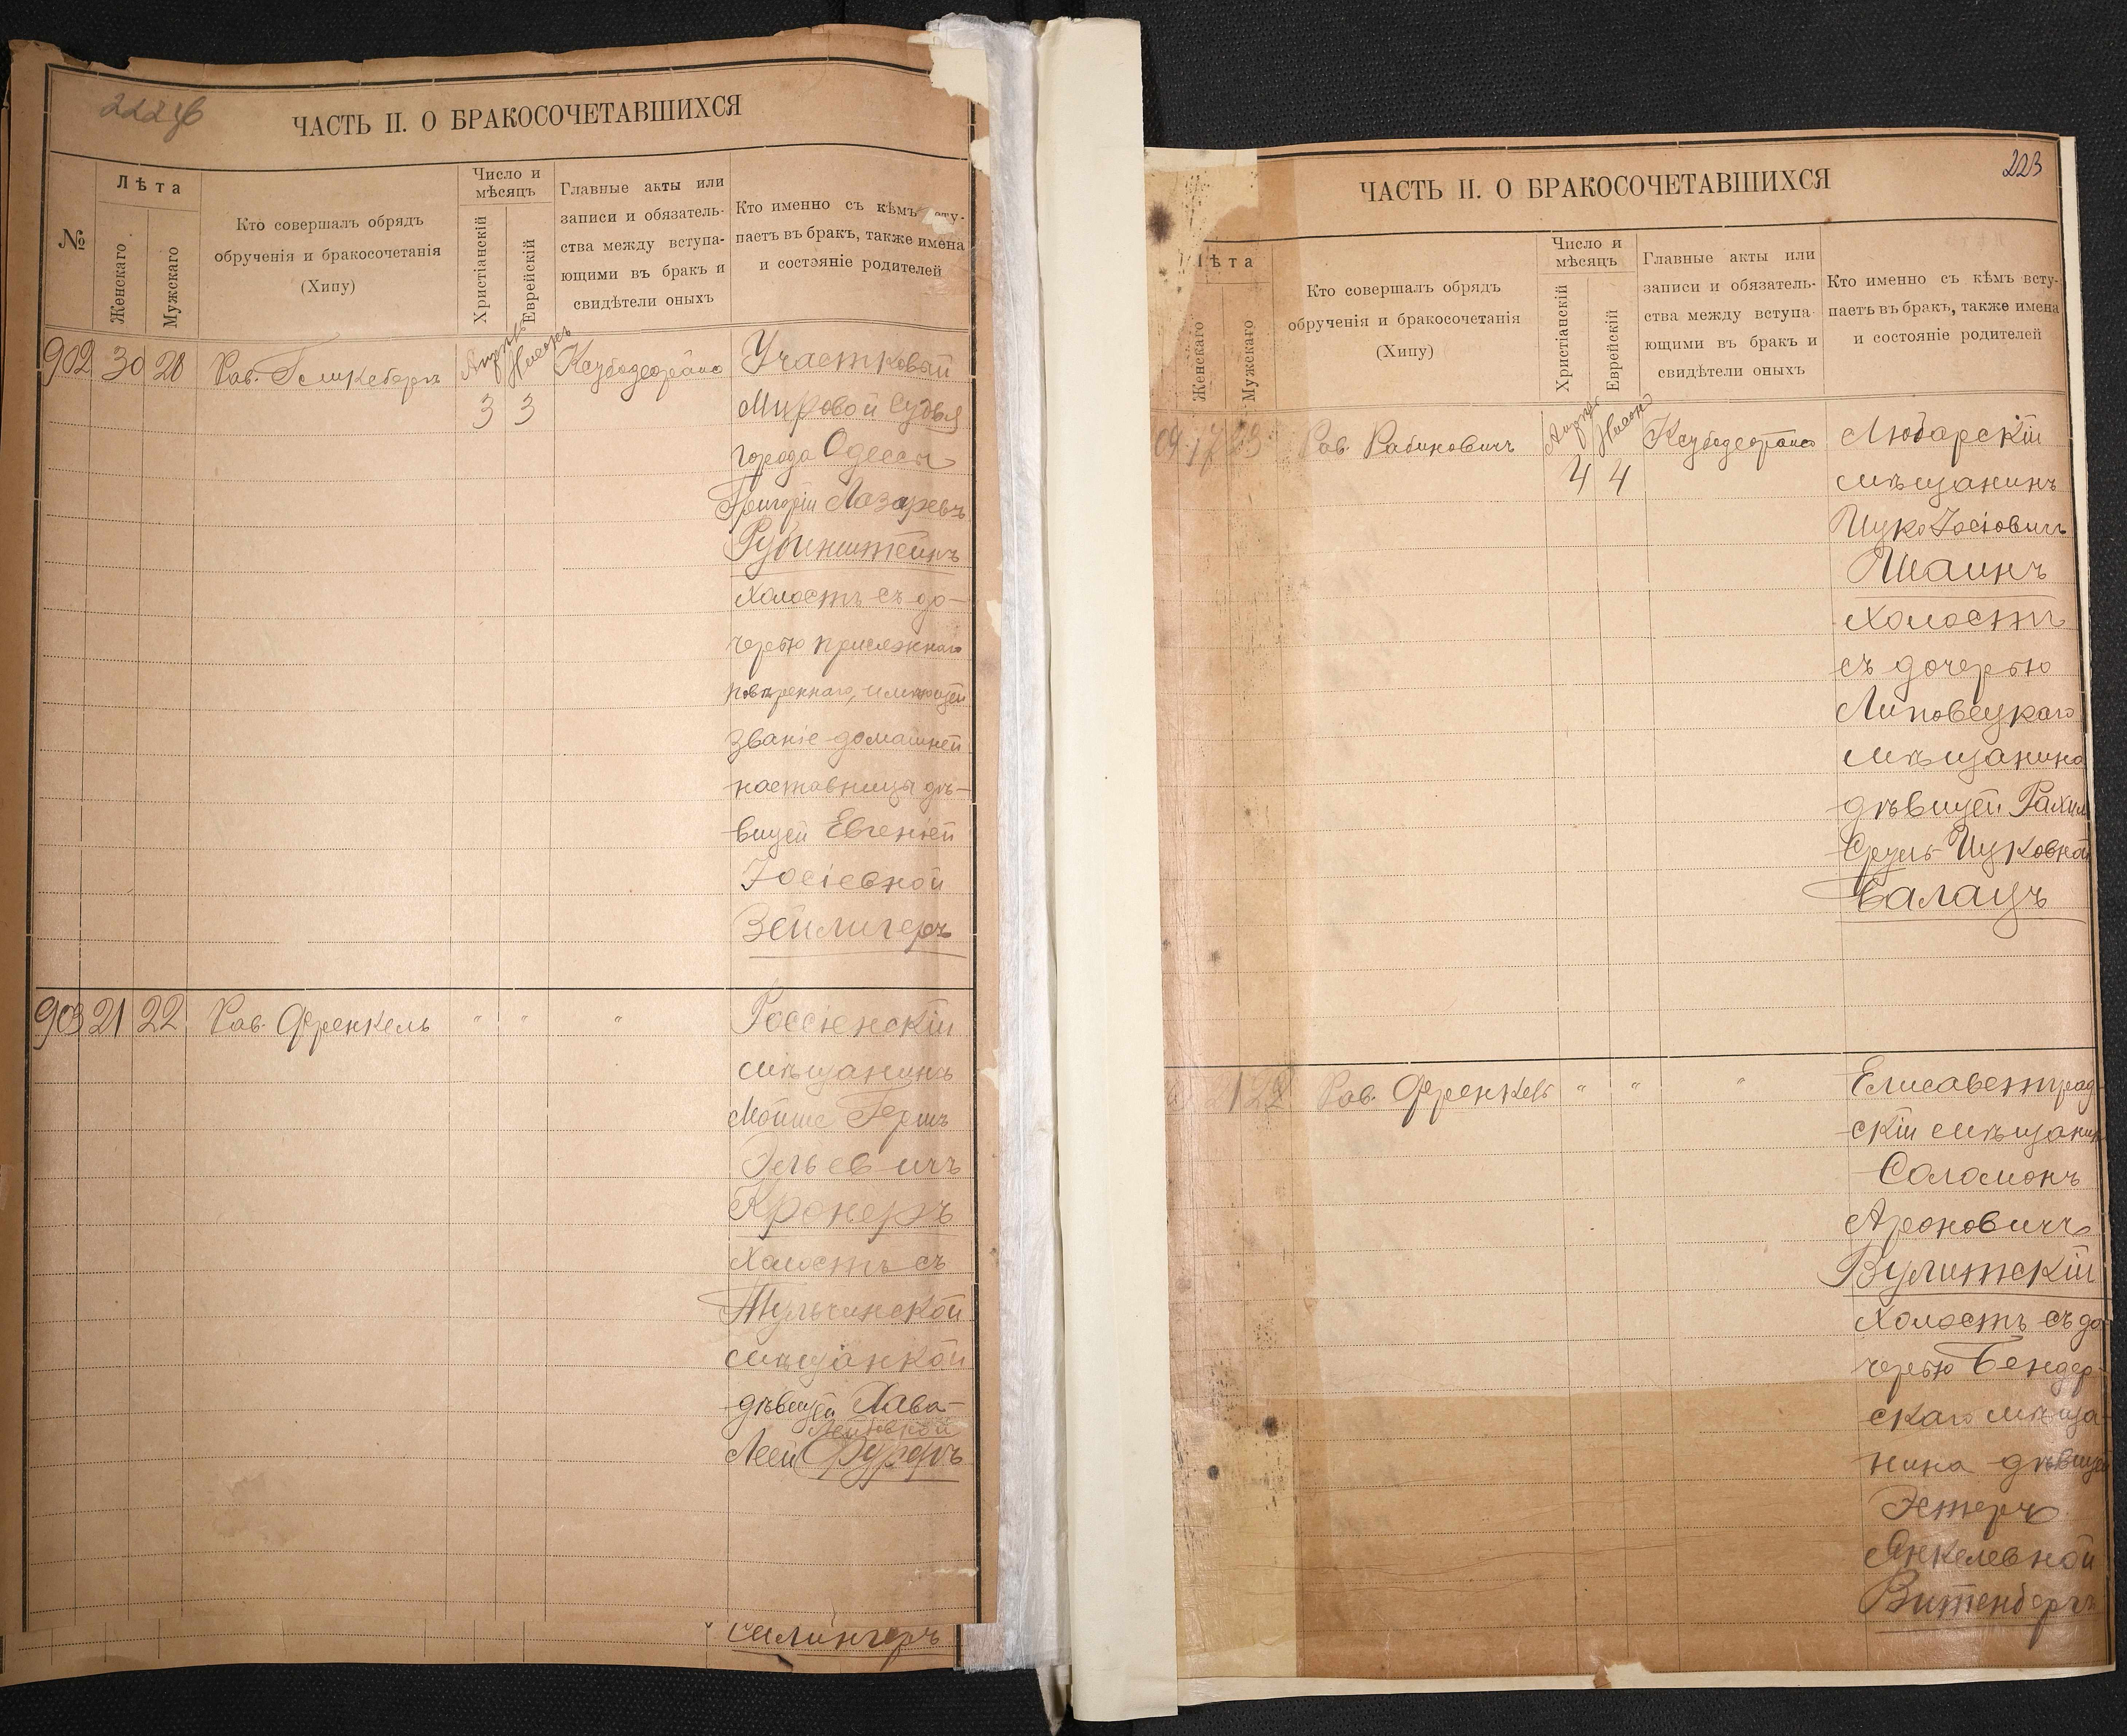 ЧАСТЬ II. О БРАКОСОЧЕТАВШИХСЯ
№
Лѣта
Женскаго
Мужскаго
Кто совершалъ обрядъ
обрученія и бракосочетанія
(Хипу)
Число и
мѣсяцъ
Христіанскій
Еврейскій
Главные акты или
записи и обязатель-
ства между вступа-
ющими въ бракъ и
свидѣтели оныхъ
Кто именно съ кѣмъ всту-
паетъ въ бракъ, также имена
и состояніе родителей
902 30 20 Рав.
3 3
Участковый
Мировой Судья
города Одессы
Григорій Лазаревъ
Рубинштейнъ
Холостъ съ до-
черью присяжнаго
повѣреннаго, имѣющей
званіе домашней
наставницы дѣ-
вицей Евгеніей
Іосіевной
Зейлигеръ
903 21 22 Рав. Френкель " " "
Россіенскій
мѣщанинъ
Мойше Гершъ
Эльевичъ
Кронеръ
Холостъ съ
Тульчинской
мѣщанкой
дѣвицей Хава-
Леей
ЧАСТЬ II. О БРАКОСОЧЕТАВШИХСЯ
223
Лѣта
Женскаго
Мужскаго
Кто совершалъ обрядъ
обрученія и бракосочетанія
(Хипу)
Число и
мѣсяцъ
Христіанскій
Еврейскій
Главные акты или
записи и обязатель-
ства между вступа-
ющими въ бракъ и
свидѣтели оныхъ
Кто именно съ кѣмъ всту-
паетъ въ бракъ, также имена
и состояніе родителей
Рав. Рабиновичъ
4 4
Любарскій
мѣщанинъ
Ицко Іосіовичъ
Шаинъ
Холостъ
съ дочерью
Липовецкаго
мѣщанина
дѣвицей
Ицковной
Балацъ
21 22 Рав. Френкель " " "
Елисаветград-
скій мѣщанинъ
Соломонъ
Ароновичъ
Вулитскій
Холостъ съ до-
черью Бендер-
скаго мѣща-
нина дѣвицей
Эстеръ
Янкелевной
Витенберъ